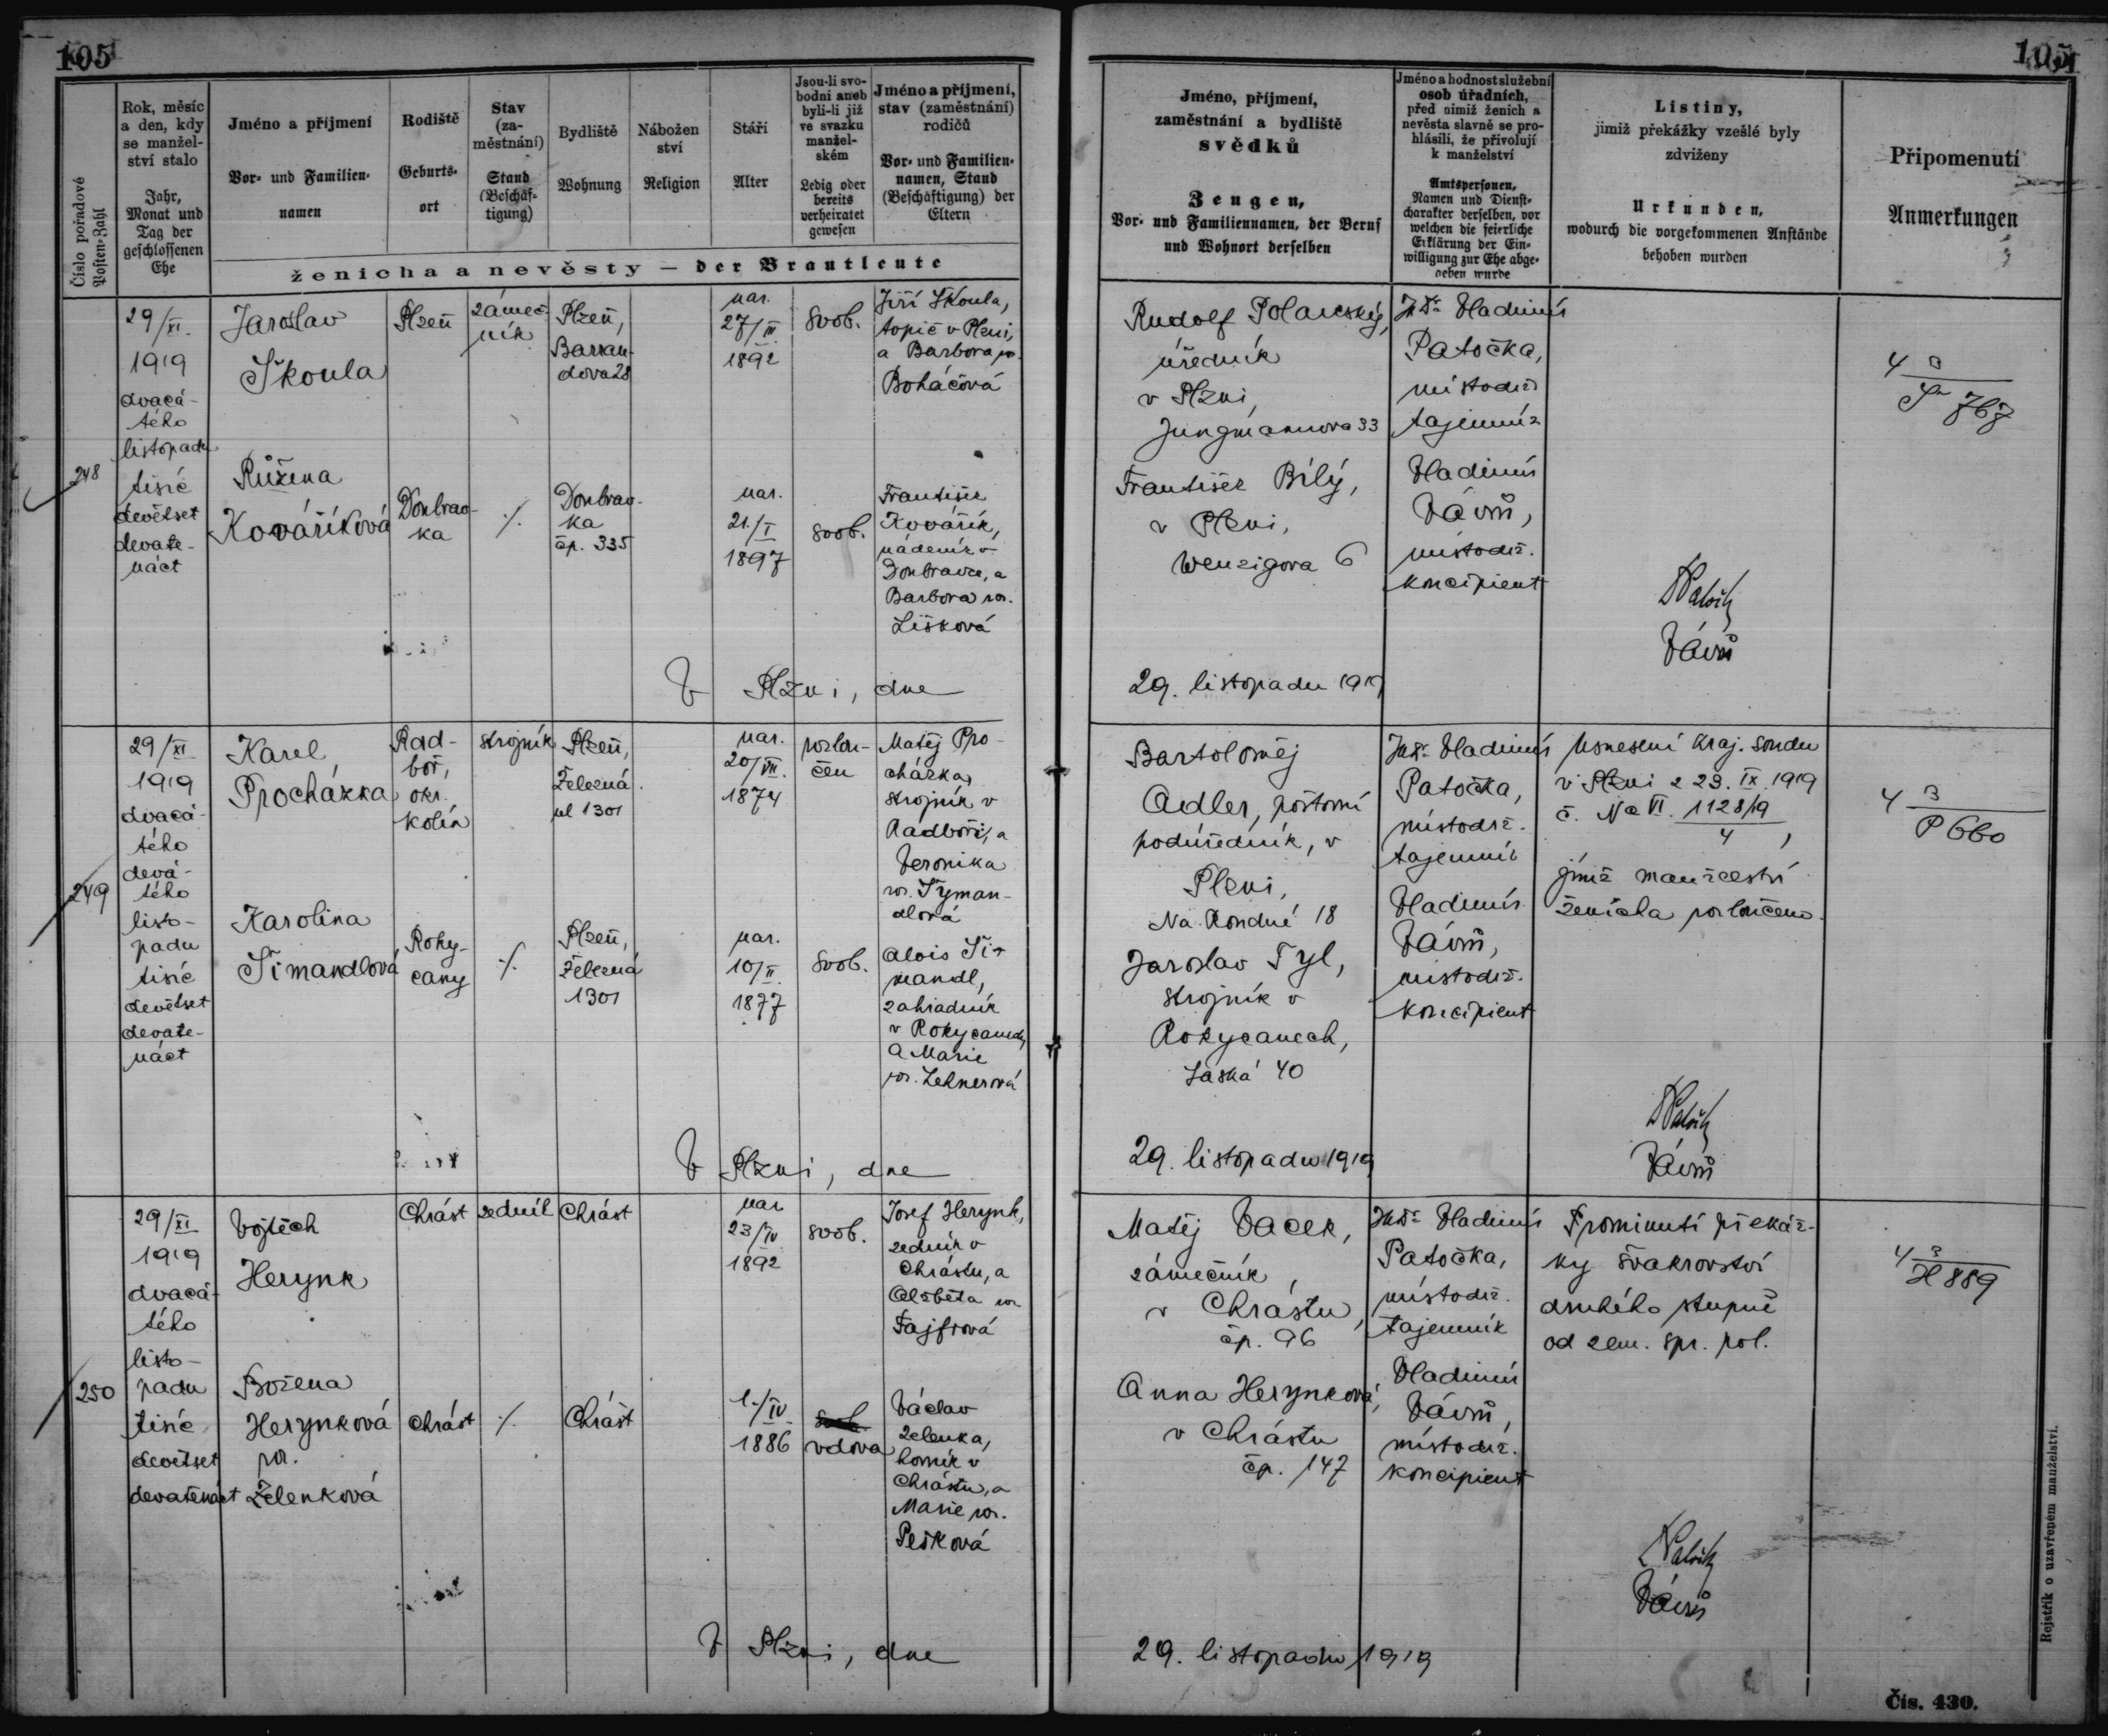 105
105
Číslo pořadové
Posten-Zahl
Rok, měsíc
a den, kdy
se manžel-
ství stalo
Jahr,
Monat und
Tag der
geschlossenen
Ehe
Jméno a příjmení
Vor- und Familien-
namen
Rodiště
Geburts-
ort
Stav
(za-
městnání)
Stand
(Beschäf-
tigung)
Bydliště
Wohnung
Nábožen
ství
Religion
Stáří
Alter
Jsou-li svo-
bodni aneb
byli-li již
ve svazku
manžel-
ském
Ledig oder
bereits
verheiratet
gewesen
Jméno a příjmení,
stav (zaměstnání)
rodičů
Vor- und Familien-
namen, Stand
(Beschäftigung) der
Eltern
ženicha a nevěsty — der Brautleute
Jméno, příjmení,
zaměstnání a bydliště
svědků
Zeugen,
Vor- und Familiennamen, der Beruf
und Wohnort derselben
Jméno a hodnost služební
osob úřadních,
před nimiž ženich a
nevěsta slavně se pro-
hlásili, že přivolují
k manželství
Amtspersonen,
Namen und Dienst-
charakter derselben, vor
welchen die feierliche
Erklärung der Ein-
willigung zur Ehe abge-
geben wurde
Listiny,
jimiž překážky vzešlé byly
zdviženy
Urkunden,
wodurch die vorgekommenen Anstände
behoben wurden
Připomenutí
Anmerkungen
248
29/XI.
1919
dvacá-
tého
listopadu
tisíc
devětset
devate-
náct
Jaroslav
Škoula
Plzeň
zámeč-
ník
Plzeň,
Barran-
dova 28
nar.
27/III
1892
svob.
Jiří Škoula,
topič v Plzni,
a Barbora roz.
Boháčová
Růžena
Kovaříková
Doubrav-
ka
·/.
Doubrav-
ka
čp. 335
nar.
21./I
1897
svob.
František
Kovářík,
nádeník v
Doubravce, a
Barbora roz.
Lišková
Rudolf Polanský,
úředník
v Plzni,
Jungmannova 33
František Bílý,
v Plzni,
Wenzigova 6
JUDr Vladimír
Patočka,
místodrž.
tajemník
Vladimír
Vávrů,
místodrž.
koncipient
DrPatočka
Vávrů
4 3
Š 767
V Plzni, dne
29. listopadu 1919
249
29/XI
1919
dvacá-
tého
devá-
tého
listo-
padu
tisíc
devětset
devate-
náct
Karel
Procházka
Rad-
boř,
okr.
Kolín
strojník
Plzeň,
Železná
ul 1301
nar.
20/VII.
1874
rozlou-
čen
Matěj Pro-
cházka,
strojník v
Radboři, a
Veronika
roz. Šyman-
dlová
Karolina
Šimandlová
Roky-
cany
·/.
Plzeň,
Železná
1301
nar.
10/II.
1877
svob.
Alois Ši-
mandl,
zahradník
v Rokycanech,
a Marie
roz. Lehnerová
Bartoloměj
Adler, poštovní
podúředník, v
Plzni,
Na Rondné 18
Jaroslav Tyl,
strojník v
Rokycanech,
Saská 40
JUDr Vladimír
Patočka,
místodrž.
tajemník
Vladimír
Vávrů,
místodrž.
koncipient
Usnesení Kraj. soudu
v Plzni z 23. IX. 1919
č. Nc VI. 1128/19
4 ,
jímž manželství
ženicha rozloučeno.
DrPatočka
Vávrů
4 3
P 660
V Plzni, dne
29. listopadu 1919
250
29/XI
1919
dvacá-
tého
listo-
padu
tisíc
devětset
devatenáct
Vojtěch
Herynk
Chrást
zedník
Chrást
nar
23/IV
1892
svob.
Josef Herynk,
zedník v
Chrástu, a
Alžběta roz
Fajfrová
Božena
Herynková
roz.
Zelenková
Chrást
·/.
Chrást
1./IV
1886
svob.
vdova
Václav
Zelenka,
horník v
Chrástu, a
Marie roz.
Pešková
Matěj Vacek,
zámečník,
v Chrástu,
čp. 96
Anna Herynková,
v Chrástu
čp. 147
JUDr Vladimír
Patočka,
místodrž.
tajemník
Vladimír
Vávrů,
místodrž.
koncipient
Prominutí překáž-
ky švakrovství
druhého stupně
od zem. spr. pol.
DrPatočka
Vávrů
4 3
H 889
V Plzni, dne
29. listopadu 1919
Rejstřík o uzavřeném manželství.
Čís. 430.